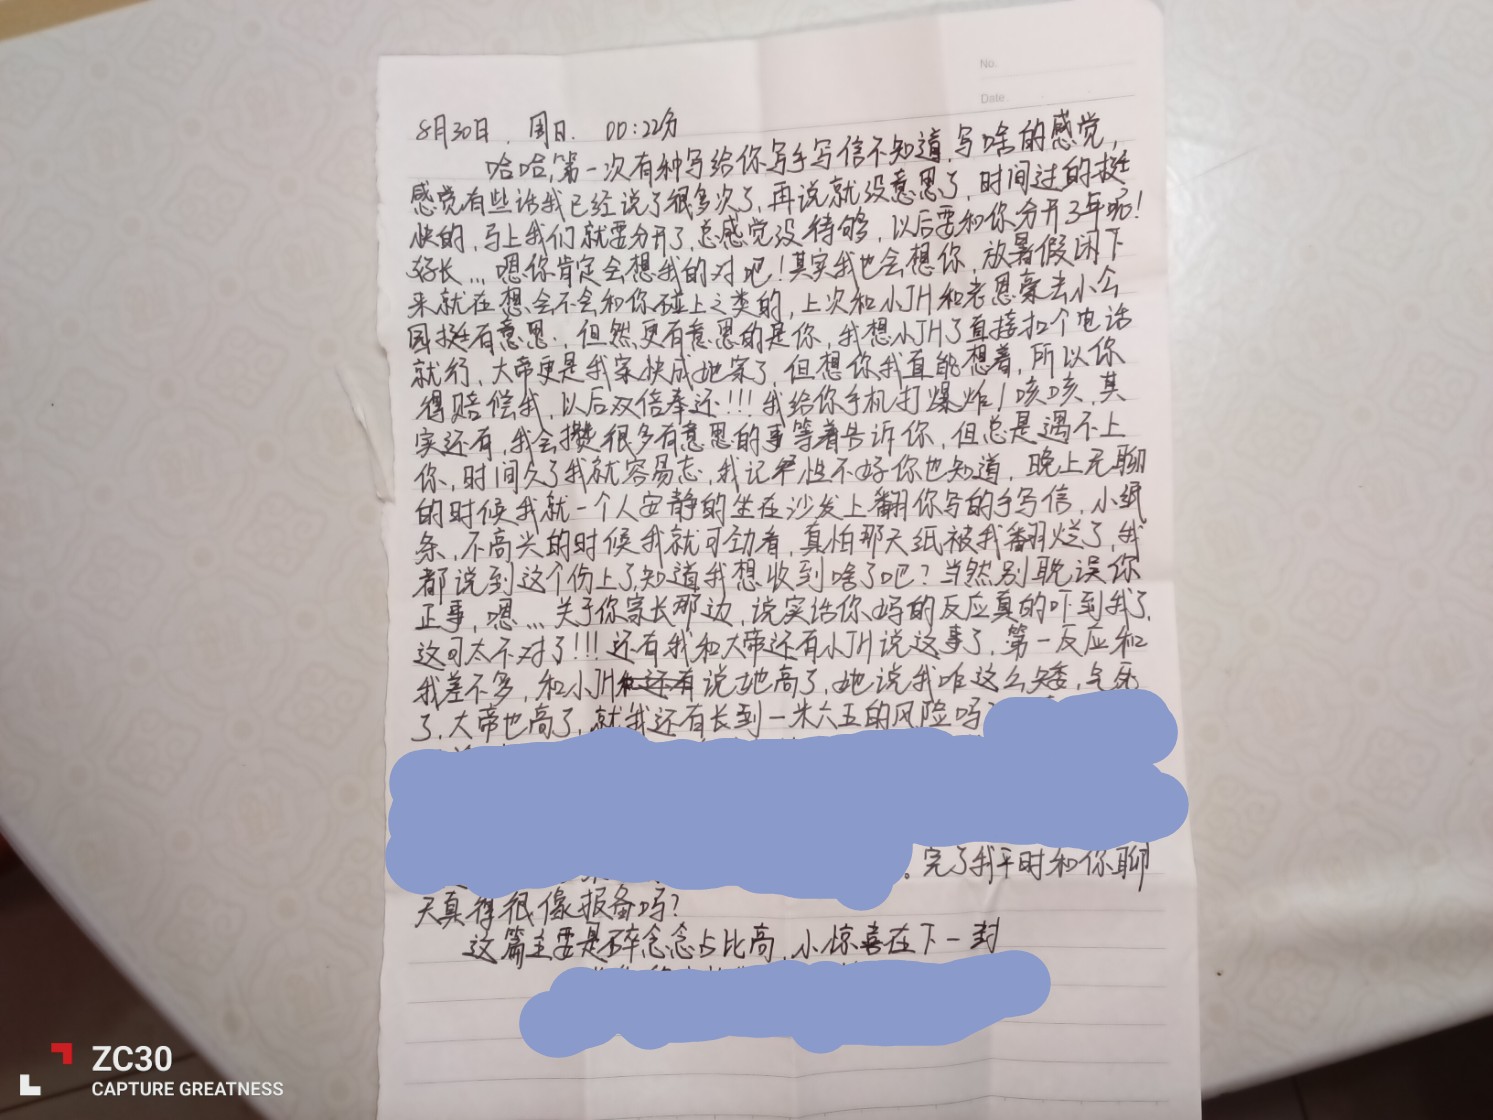 No.
Date
8月30日. 周日. 00:22分
哈哈,第一次有种写给你写手写信不知道,写啥的感觉,
感觉有些话我已经说了很多次了,再说就没意思了,时间过的挺
快的,马上我们就要分开了,总感觉没待够,以后要和你分开3年呢!
好长...嗯你肯定会想我的对吧!其实我也会想你,放暑假闲下
来就在想会不会和你碰上之类的,上次和小JH和老恩豪去小公
园挺有意思.,但然更有意思的是你,我想小JH了直接扣个电话
就行,大帝更是我家快成她家了,但想你我直能想着,所以你
得赔偿我,以后双倍奉还!!!我给你手机打爆炸!咳咳,其
实还有,我会攒很多有意思的事等着告诉你,但总是遇不上
你,时间久了我就容易忘,我记性不好你也知道,晚上无聊
的时候我就一个人安静的坐在沙发上翻你写的手写信,小纸
条,不高兴的时候我就可劲看,真怕那天纸被我翻烂了,我
都说到这个份上了,知道我想收到啥了吧?当然别耽误你
正事,嗯...关于你家长那边,说实话你妈的反应真的吓到我了,
这可太不对了!!!还有我和大帝还有小JH说这事了,第一反应和
我差不多,和小JH和还有说她高了,她说我咋这么矮,气死
了,大帝也高了,就我还有长到一米六五的风险吗?
。完了我平时和你聊
天真得很像报备吗?
这篇主要是碎念念占比高,小惊喜在下一封
ZC30
CAPTURE GREATNESS